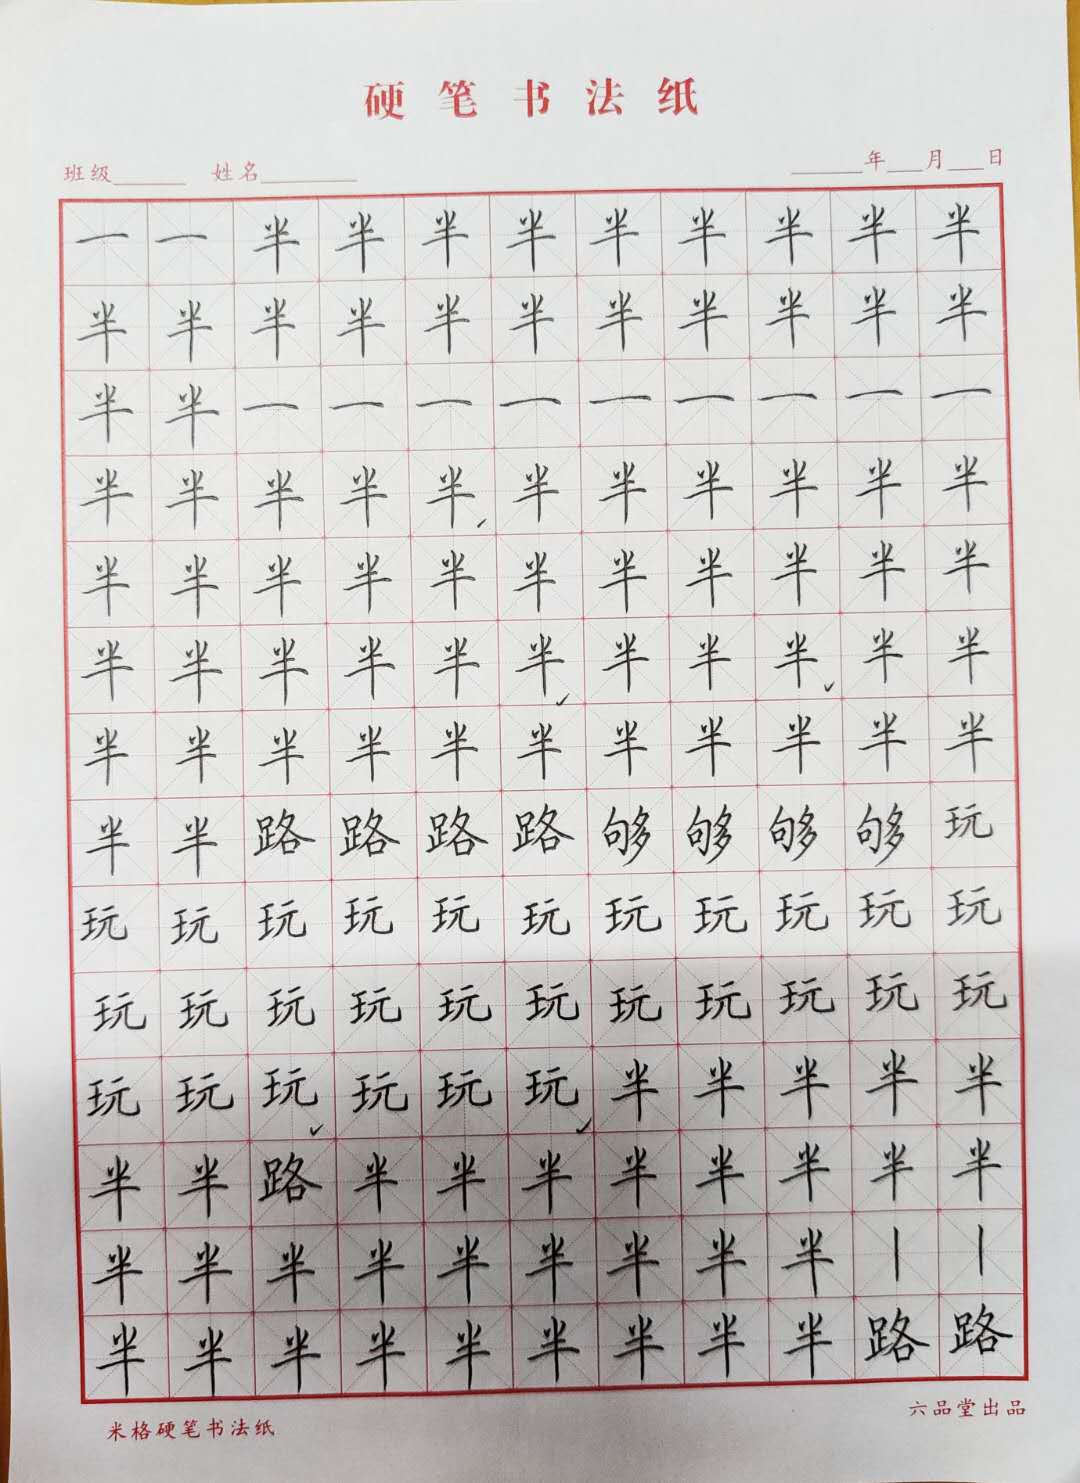 硬笔书法纸
班级______ 姓名________ ______年___月___日
一一半半半半半半半半半
半半半半半半半半半半半
半半一一一一一一一一一
半半半半半半半半半半半
半半半半半半半半半半半
半半半半半半半半半半半
半半半半半半半半半半半
半半路路路路够够够够玩
玩玩玩玩玩玩玩玩玩玩玩
玩玩玩玩玩玩玩玩玩玩玩
玩玩玩玩玩玩半半半半半
半半路半半半半半半半半
半半半半半半半半半丨丨
半半半半半半半半半路路
米格硬笔书法纸 六品堂出品